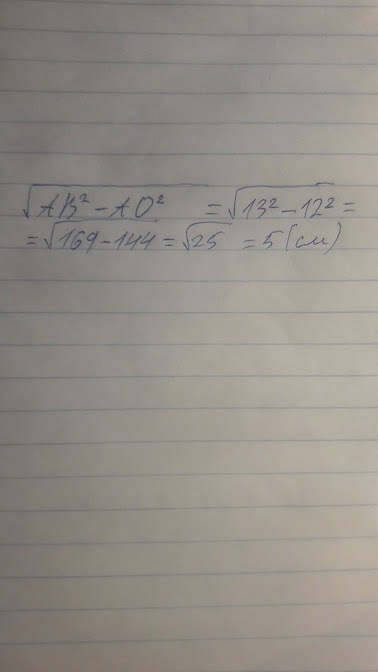 √AB² - AO² = √13² - 12² =
= √169 - 144 = √25 = 5 (см)